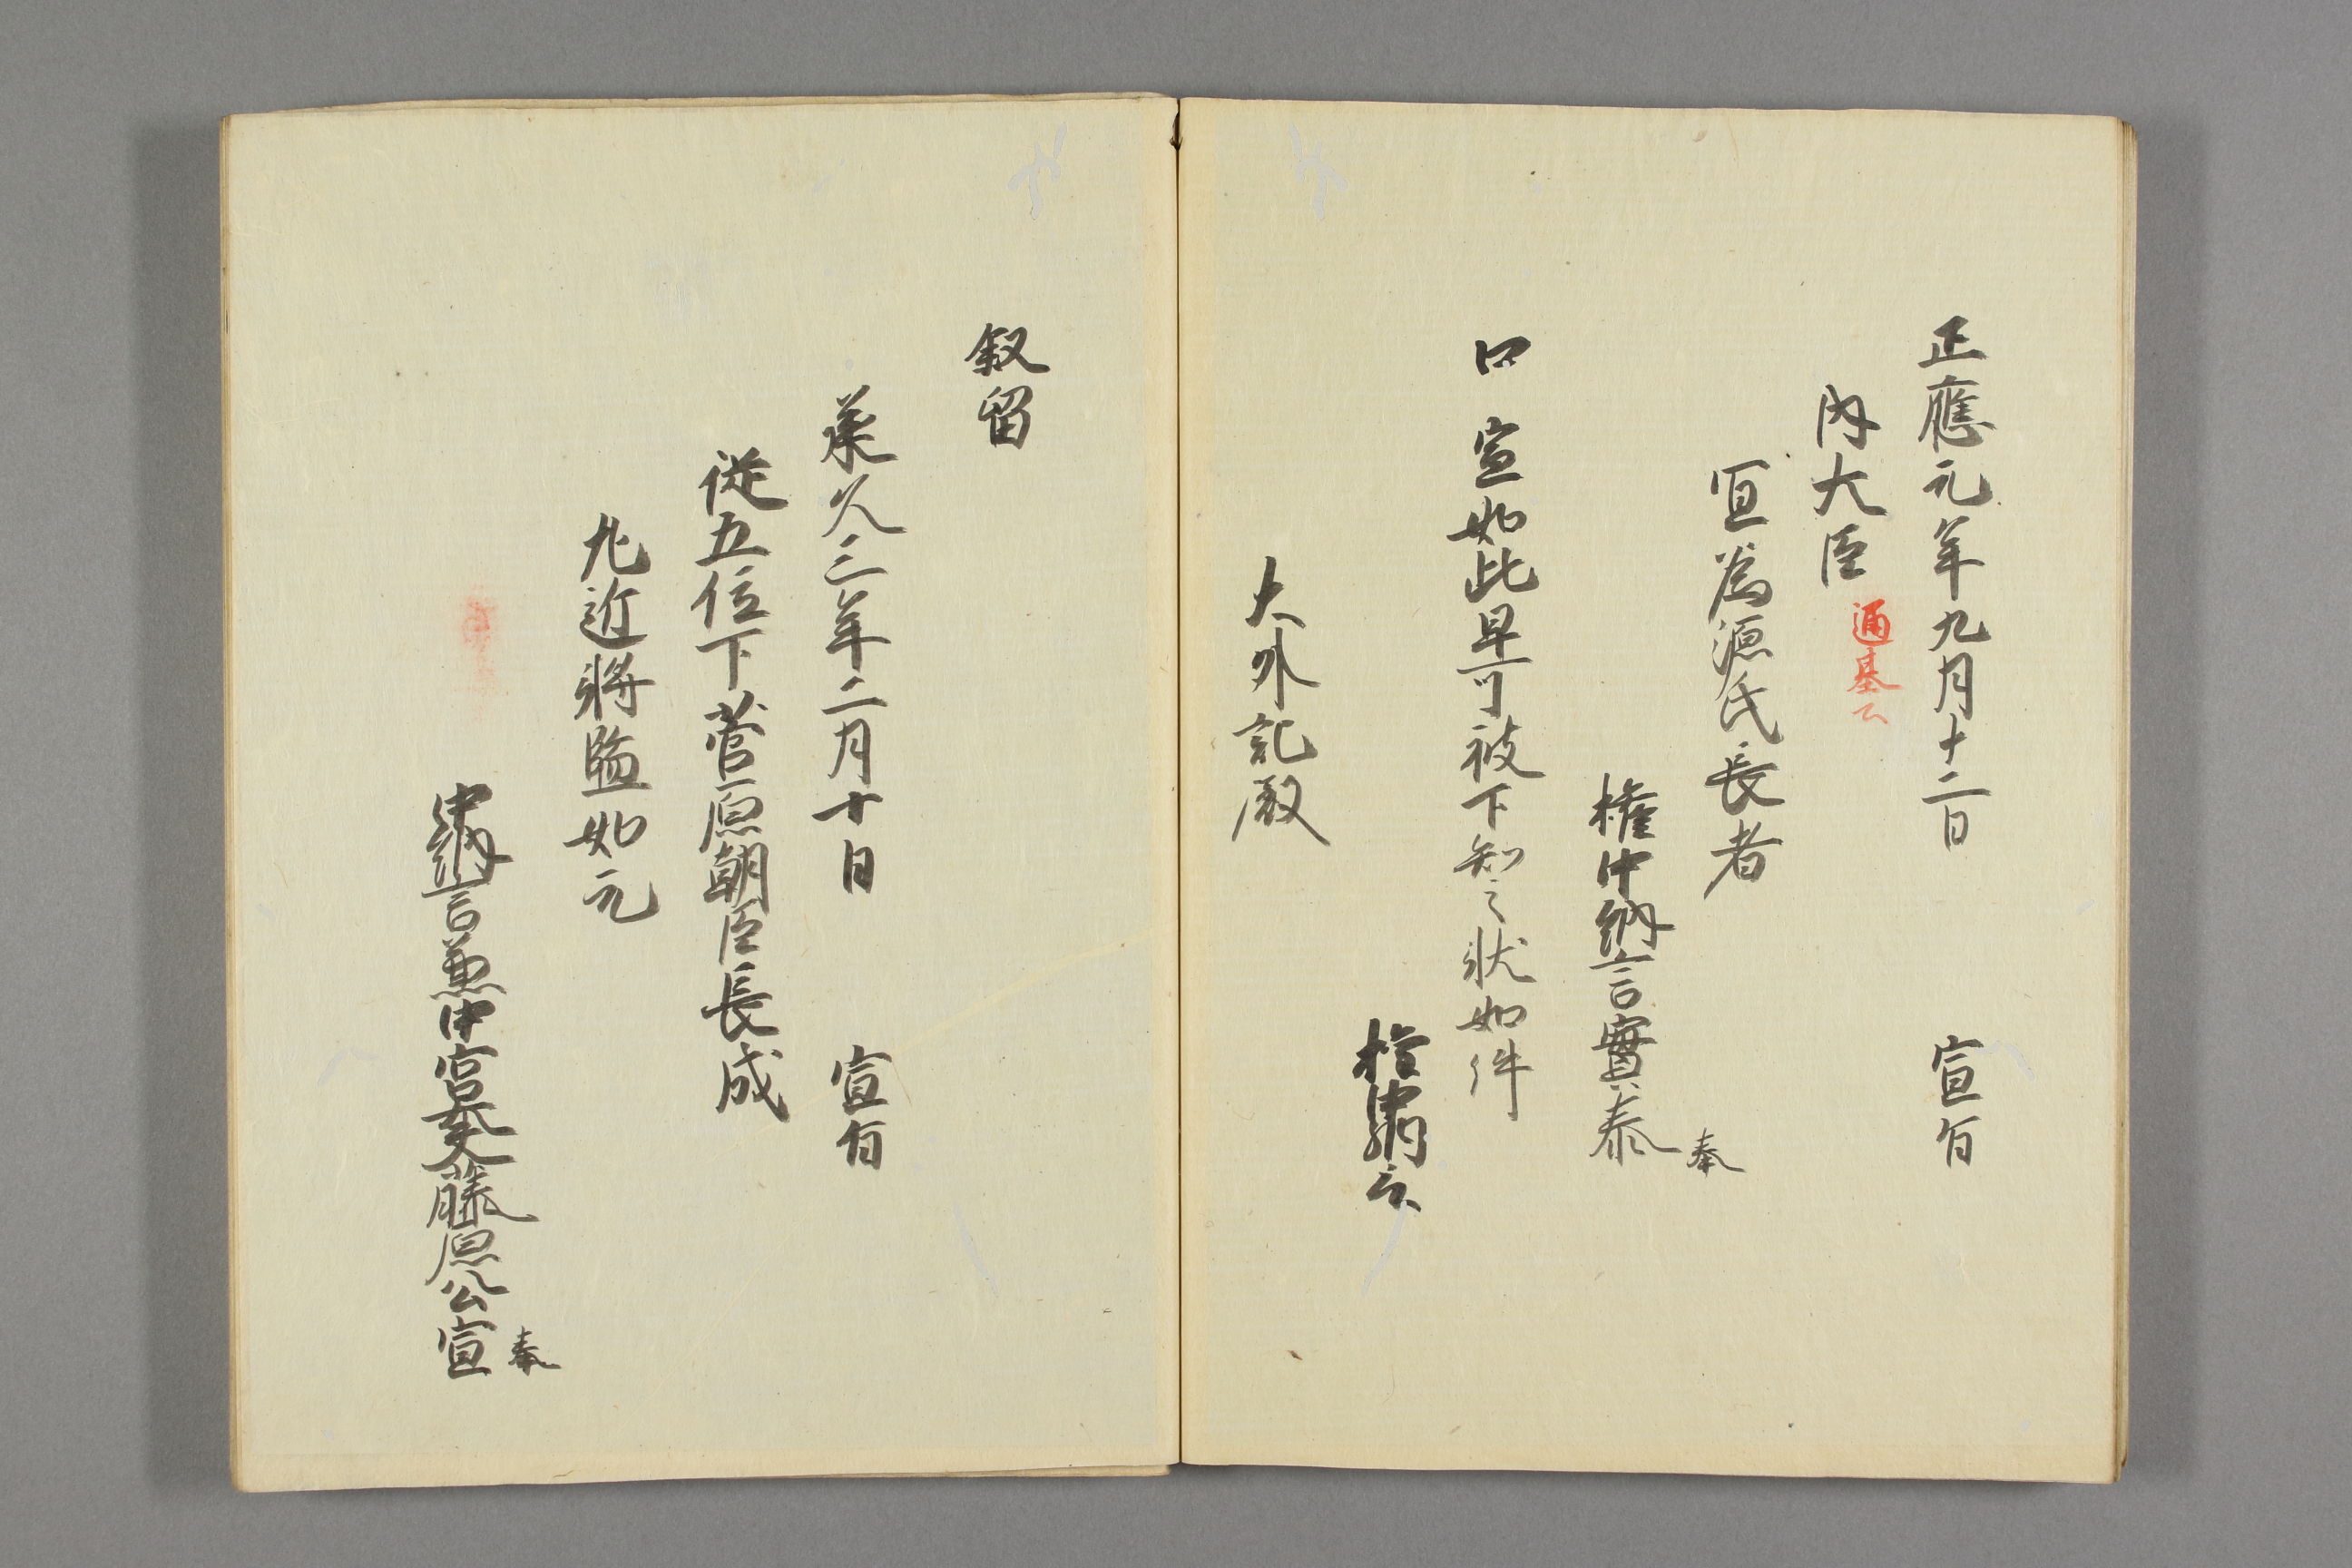 正應元年九月十二日　宣旨
内大臣 通基公
宜為源氏長者
権中納言實泰 奉
口　宣如此早可被下知之状如件
権中納言
大外記殿
叙留
承久三年二月十日　宣旨
従五位下菅原朝臣長成
左近将監如元
中納言兼中宮大夫藤原公宣 奉